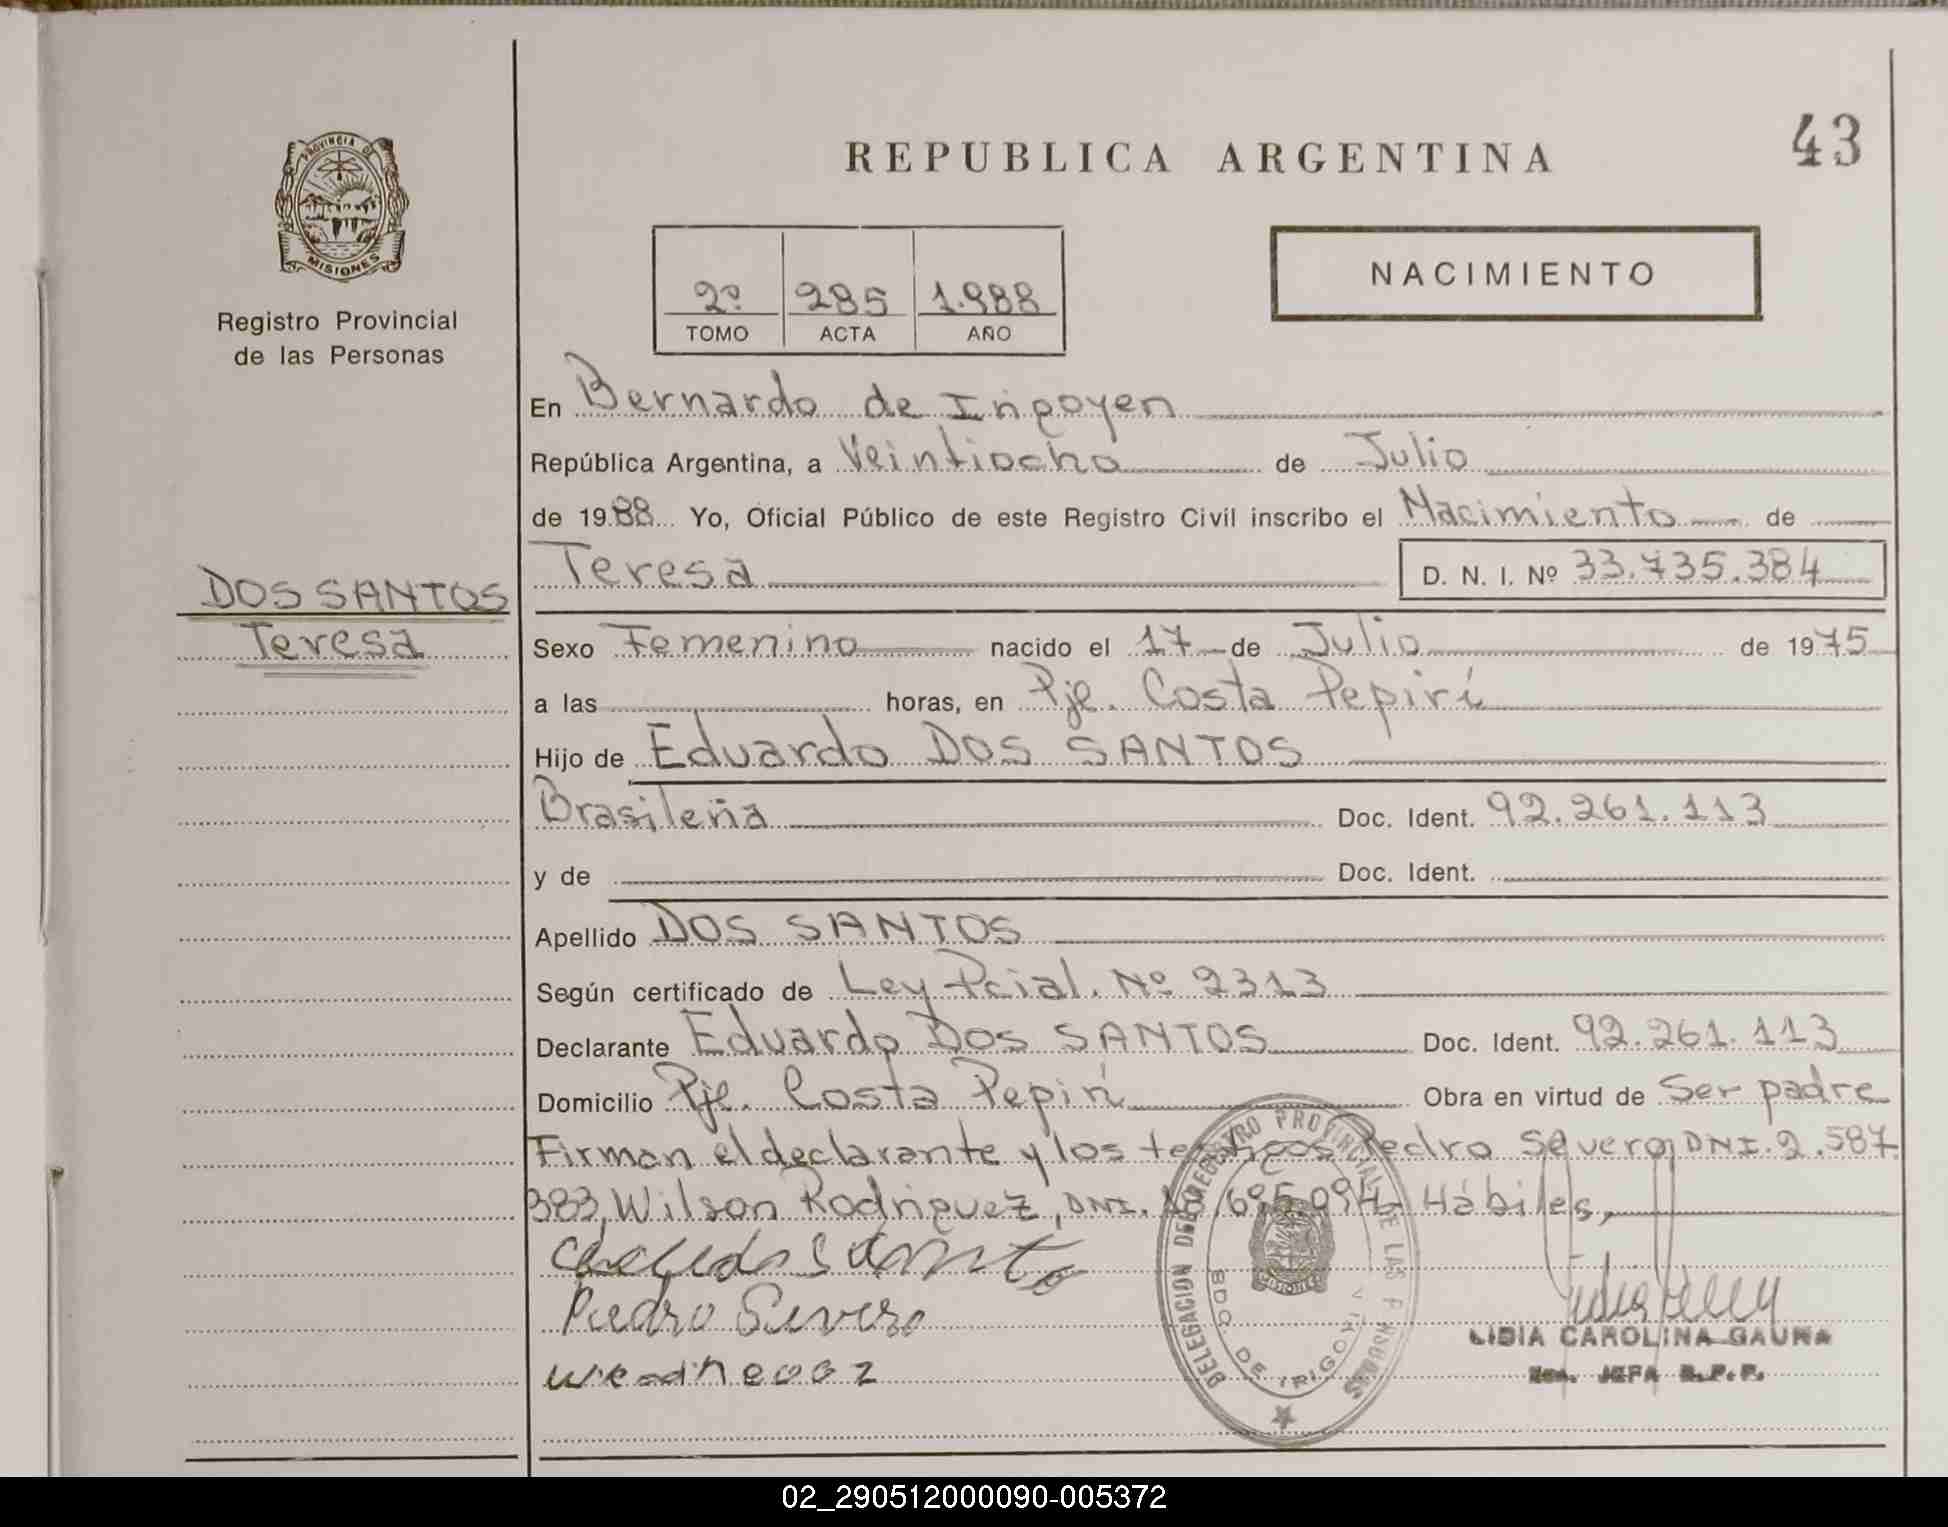 REPUBLICA ARGENTINA
43
PROVINCIA DE
MISIONES
Registro Provincial
de las Personas
2º 285 1.988
TOMO ACTA AÑO
NACIMIENTO
En Bernardo de Irigoyen
República Argentina, a Veintiocho de Julio
de 1988 Yo, Oficial Público de este Registro Civil inscribo el Nacimiento de
Teresa D. N. I. Nº 33.735.384
DOS SANTOS
Teresa
Sexo Femenino nacido el 17 de Julio de 1975
a las horas, en Pje. Costa Pepirí
Hijo de Eduardo DOS SANTOS
Brasileña Doc. Ident. 92.261.113
y de Doc. Ident.
Apellido DOS SANTOS
Según certificado de Ley Pcial. Nº 2313
Declarante Eduardo DOS SANTOS Doc. Ident. 92.261.113
Domicilio Pje. Costa Pepirí Obra en virtud de Ser padre
Firman el declarante y los testigos Pedro Severo, DNI. 2.587.
383, Wilson Rodriguez, DNI. 695.094 Hábiles,
Piedro Severo
DELEGACION DEL REGISTRO PROVINCIAL DE LAS PERSONAS
BDO. DE IRIGOYEN
MISIONES
LIDIA CAROLINA GAUNA
JEFA R.P.P.
02_290512000090-005372